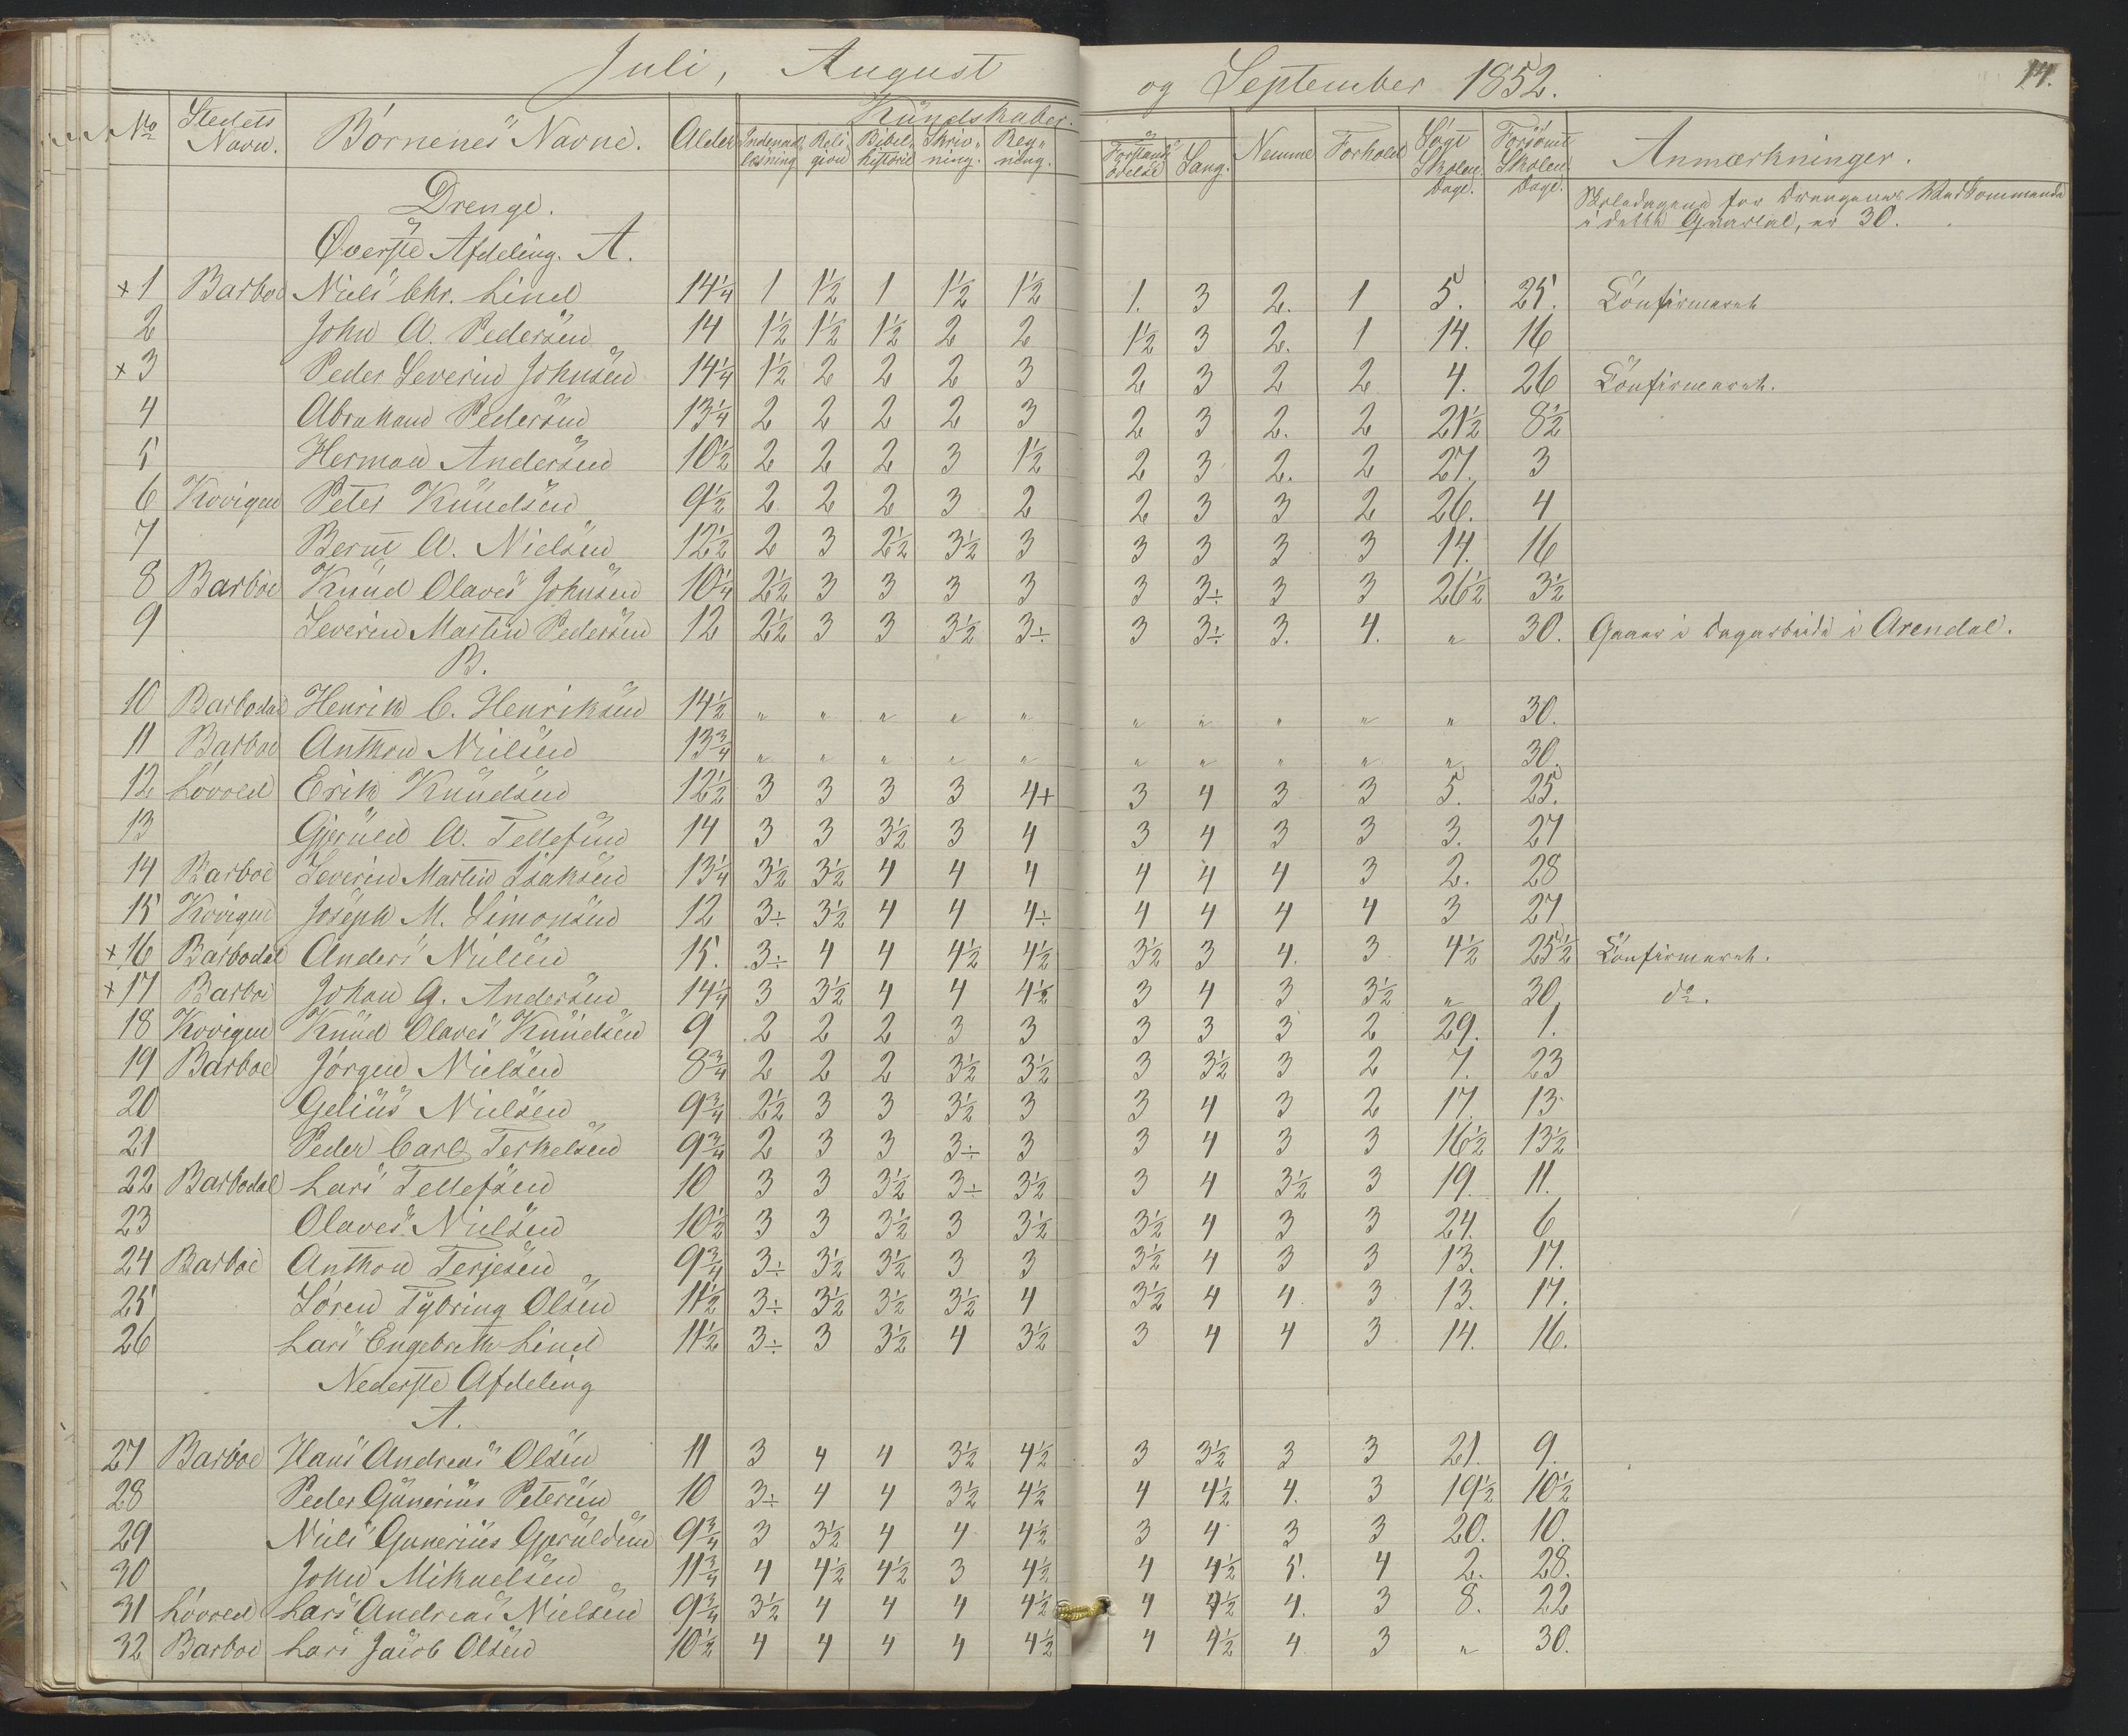 Juli, August og September 1852. 14.
No Stedets Navn. Børnenes Navne. Alder Kundskaber. Indenadlæsning Religion Bibelhistorie Skrivning. Regning. Forstandsøvelse Sang. Nemme Forhold Søgt Skolen Dage. Forsømt Skolen Dage. Anmærkninger.
Drenge. Skoledagene for Drengenes Vedkommende
i dette Qvartal, er 30.
Øverste Afdeling. A.
+1 Barboe Niels Chr. Lind 14¼ 1 1½ 1 1½ 1½ 1. 3 2. 1 5. 25. Confirmeret
2 John A. Pedersen 14 1½ 1½ 1½ 2 2 1½ 3 2. 1 14. 16
+3 Peder Severin Johnsen 14¼ 1½ 2 2 2 3 2 3 2 2 4. 26 Confirmeret.
4 Abraham Pedersen 13¼ 2 2 2 2 3 2 3 2. 2 21½ 8½
5 Herman Andersen 10½ 2 2 2 3 1½ 2 3 2. 2 27. 3
6 Kovigen Peter Knudsen 9½ 2 2 2 3 2 2 3 3 2 26. 4
7 Bernt A. Nielsen 12½ 2 3 2½ 3½ 3 3 3 3 3 14. 16
8 Barboe Knud Olaves Johnsen 10¼ 2½ 3 3 3 3 3 3÷ 3 3 26½ 3½
9 Severin Martin Pedersen 12 2½ 3 3 3½ 3÷ 3 3÷ 3. 4. „ 30. Gaaer i Dagarbeide i Arendal.
B.
10 Barbodal Henrik C. Henriksen 14½ „ „ „ „ „ „ „ „ „ „ 30.
11 Barboe Anthon Nielsen 13¾ „ „ „ „ „ „ „ „ „ „ 30.
12 Løvold Erik Knudsen 12½ 3 3 3 3 4+ 3 4 3 3 5. 25.
13 Gjeruld A. Tellefsen 14 3 3 3½ 3 4 3 4 3 3 3. 27
14 Barboe Severin Martin Isaksen 13¼ 3½ 3½ 4 4 4 4 4 4 3 2. 28
15 Kovigen Joseph M. Simonsen 12 3÷ 3½ 4 4 4÷ 4 4 4 4 3 27
+16 Barbodal Anders Nielsen 15. 3÷ 4 4 4½ 4½ 3½ 3 4. 3 4½ 25½ Confirmeret.
+17 Barboe Johan G. Andersen 14¼ 3 3½ 4 4 4½ 3 4 3 3½ „ 30. do.
18 Kovigen Knud Olaves Knudsen 9 2 2 2 3 3 3 3 3 2 29. 1.
19 Barboe Jørgen Nielsen 8¾ 2 2 2 3½ 3½ 3 3½ 3 2 7. 23
20 Gelius Nielsen 9¾ 2½ 3 3 3½ 3 3 4 3 2 17. 13
21 Peder Carl Terkelsen 9¾ 2 3 3 3÷ 3 3 4 3 3 16½ 13½
22 Barbodal Lars Tellefsen 10 3 3 3½ 3÷ 3½ 3 4 3½ 3 19. 11.
23 Olaves Nielsen 10½ 3 3 3½ 3 3½ 3½ 4 3 3 24. 6
24 Barboe Anthon Terjesen 9¾ 3÷ 3½ 3½ 3 3 3½ 4 3 3 13. 17.
25 Søren Tybring Olsen 11½ 3÷ 3½ 3½ 3½ 4 3½ 4 4 3 13. 17.
26 Lars Engebreth Lind 11½ 3÷ 3 3½ 4 3½ 3 4 4 3 14. 16.
Nederste Afdeling
A.
27 Barboe Hans Andreas Olsen 11 3 4 4 3½ 4½ 3 3½ 3 3 21. 9.
28 Peder Gunerius Petersen 10 3÷ 4 4 3½ 4½ 4 4½ 4. 3 19½ 10½
29 Niels Gunerius Gjeruldsen 9¾ 3 3½ 4 4 4½ 3 4 3 3 20. 10.
30 John Mikaelsen 11¾ 4 4½ 4½ 3 4½ 4 4½ 5. 4 2. 28.
31 Løvold Lars Andreas Nielsen 9¾ 3½ 4 4 4 4½ 4 4½ 4. 3 8. 22
32 Barboe Lars Jacob Olsen 10½ 4 4 4 4 4½ 4 4½ 4 3 „ 30.